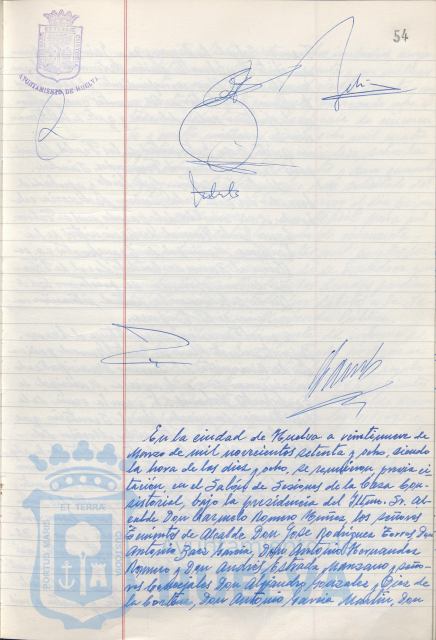 54
AYUNTAMIENTO DE HUELVA
En la ciudad de Huelva a veintinueve de
Marzo de mil novecientos setenta y ocho, siendo
la hora de las diez y ocho, se reunieron, previa ci-
tación en el Salón de Sesiones de la Casa Con-
sistorial, bajo la presidencia del Iltmo. Sr. Al-
calde Don Carmelo Romero Núñez, los señores
Tenientes de Alcalde Don José Rodríguez Don
Antonio García, Don Antonio Hernandez
Romero y Don Andrés Estrada Manzano, y seño-
res Concejales Don Alejandro Gonzalez y Diaz de
la Don Antonio García Martín, Don
PORTUS MARIS
ET TERRAE
CUSTODIA